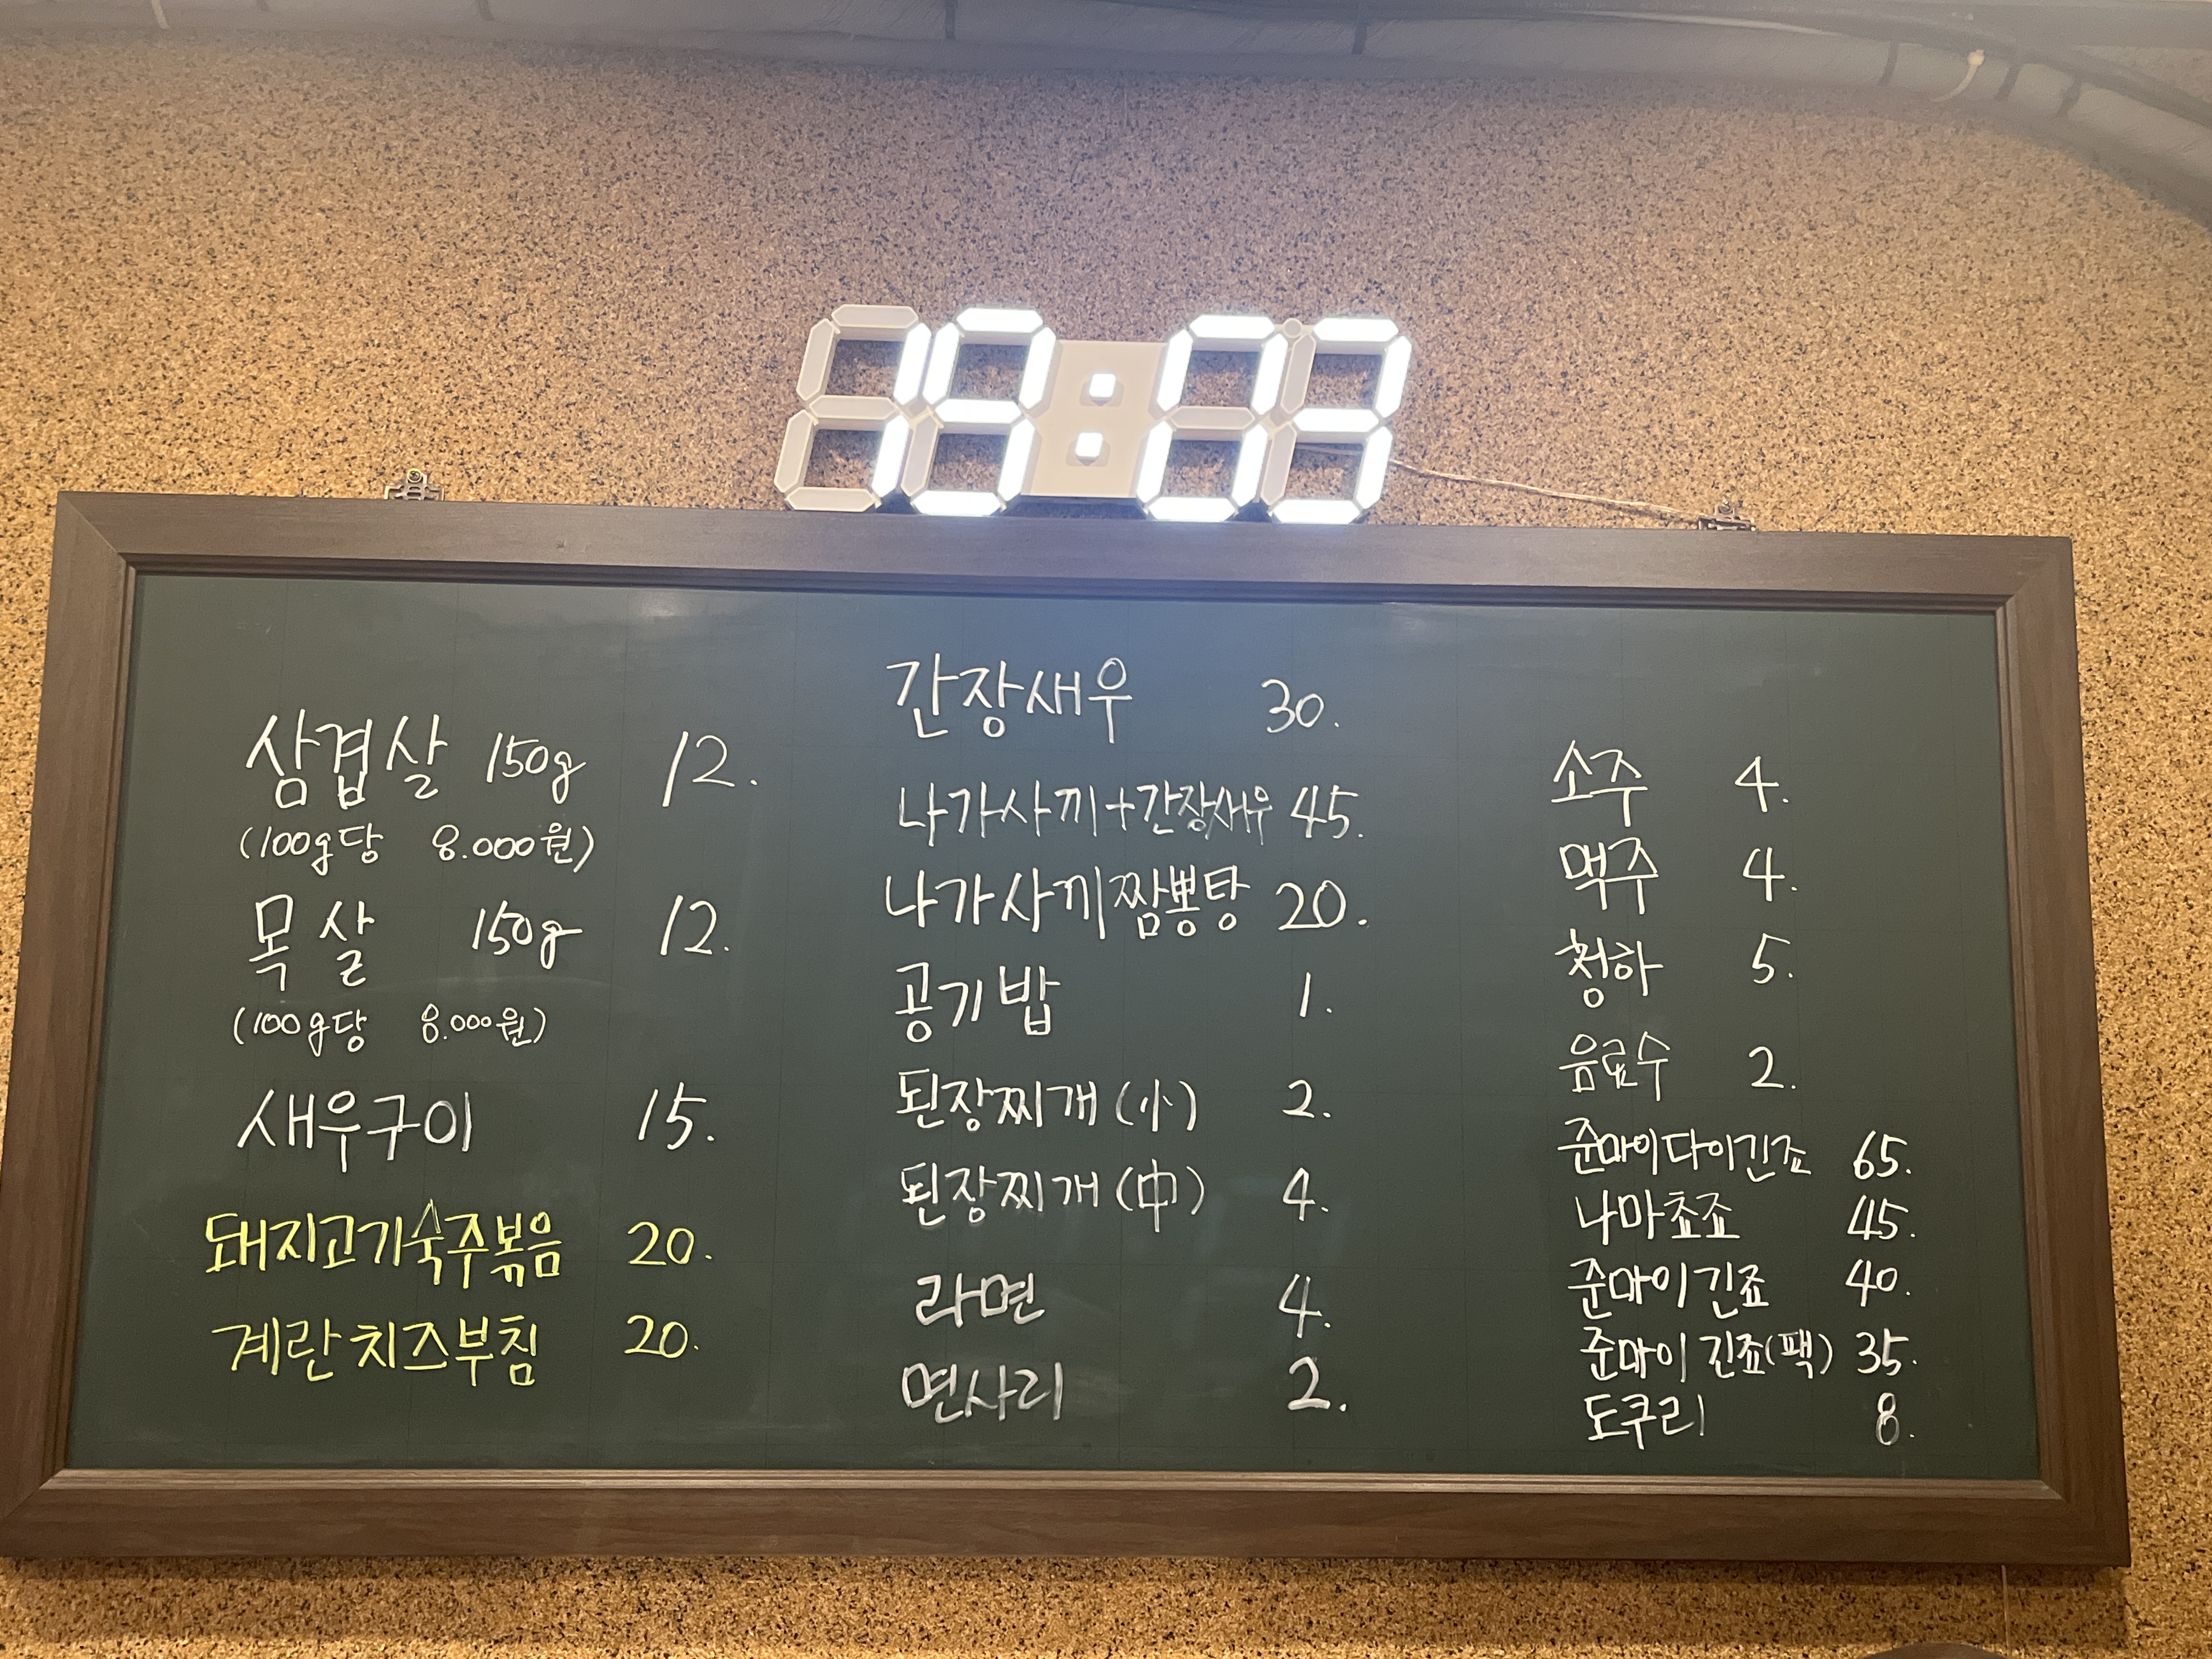 19:03
삼겹살 150g 12.
(100g당 8.000원)
목살 150g 12.
(100g당 8.000원)
새우구이 15.
돼지고기숙주볶음 20.
계란치즈부침 20.
간장새우 30.
나가사끼+간장새우 45.
나가사끼짬뽕탕 20.
공기밥 1.
된장찌개(小) 2.
된장찌개(中) 4.
라면 4.
면사리 2.
소주 4.
맥주 4.
청하 5.
음료수 2.
준마이다이긴죠 65.
나마쵸죠 45.
준마이긴죠 40.
준마이긴죠(팩) 35.
도쿠리 8.